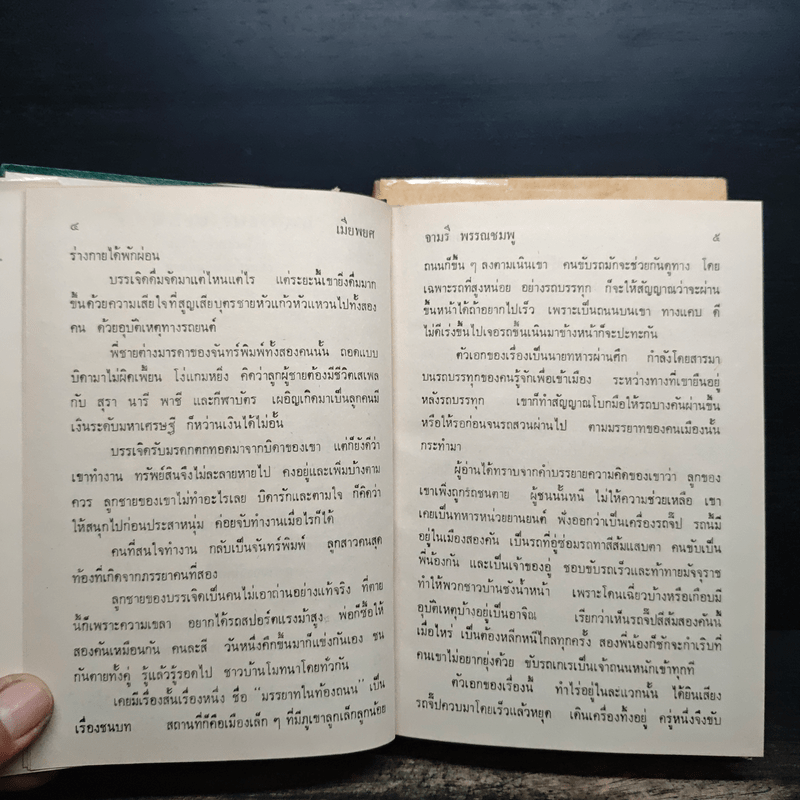 ๔ เมียพยศ
ร่างกายได้พักผ่อน
บรรเจิดดื่มจัดมาแต่ไหนแต่ไร แต่ระยะนี้เขายิ่งดื่มมาก
ขึ้นด้วยความเสียใจที่สูญเสียบุตรชายหัวแก้วหัวแหวนไปทั้งสอง
คน ด้วยอุบัติเหตุทางรถยนต์
พี่ชายต่างมารดาของจันทร์พิมพ์ทั้งสองคนนั้น ถอดแบบ
บิดามาไม่ผิดเพี้ยน โง่แกมหยิ่ง คิดว่าลูกผู้ชายต้องมีชีวิตเสเพล
กับ สุรา นารี พาชี และกีฬาบัตร เผอิญเกิดมาเป็นลูกคนมี
เงินระดับมหาเศรษฐี ก็หว่านเงินได้ไม่อั้น
บรรเจิดรับมรดกตกทอดมาจากบิดาของเขา แต่ก็ยังดีว่า
เขาทำงาน ทรัพย์สินจึงไม่ละลายหายไป คงอยู่และเพิ่มบ้างตาม
ควร ลูกชายของเขาไม่ทำอะไรเลย บิดารักและตามใจ ก็คิดว่า
ให้สนุกไปก่อนประสาหนุ่ม ค่อยจับทำงานเมื่อไรก็ได้
คนที่สนใจทำงาน กลับเป็นจันทร์พิมพ์ ลูกสาวคนสุด
ท้องที่เกิดจากภรรยาคนที่สอง
ลูกชายของบรรเจิดเป็นคนไม่เอาถ่านอย่างแท้จริง ที่ตาย
นี้ก็เพราะความเขลา อยากได้รถสปอร์ตแรงม้าสูง พ่อก็ซื้อให้
สองคันเหมือนกัน คนละสี วันหนึ่งคึกขึ้นมาก็แข่งกันเอง ชน
กันตายทั้งคู่ รู้แล้วรู้รอดไป ชาวบ้านโมทนาโดยทั่วกัน
เคยมีเรื่องสั้นเรื่องหนึ่ง ชื่อ “มรรยาทในท้องถนน” เป็น
เรื่องชนบท สถานที่ก็คือเมืองเล็ก ๆ ที่มีภูเขาลูกเล็กลูกน้อย
จามรี พรรณชมพู ๕
ถนนก็ขึ้น ๆ ลงตามเนินเขา คนขับรถมักจะช่วยกันดูทาง โดย
เฉพาะรถที่สูงหน่อย อย่างรถบรรทุก ก็จะให้สัญญาณว่าจะผ่าน
ขึ้นหน้าได้ถ้าอยากไปเร็ว เพราะเป็นถนนบนเขา ทางแคบ ดี
ไม่ดีเร่งขึ้นไปเจอรถขึ้นเนินมาข้างหน้าก็จะปะทะกัน
ตัวเอกของเรื่องเป็นนายทหารผ่านศึก กำลังโดยสารมา
บนรถบรรทุกของคนรู้จักเพื่อเข้าเมือง ระหว่างทางที่เขายืนอยู่
หลังรถบรรทุก เขาก็ทำสัญญาณโบกมือให้รถบางคันผ่านขึ้น
หรือให้รอก่อนจนรถสวนผ่านไป ตามมรรยาทของคนเมืองนั้น
กระทำมา
ผู้อ่านได้ทราบจากคำบรรยายความคิดของเขาว่า ลูกของ
เขาเพิ่งถูกรถชนตาย ผู้ชนนั้นหนี ไม่ให้ความช่วยเหลือ เขา
เคยเป็นทหารหน่วยยานยนต์ ฟังออกว่าเป็นเครื่องรถจี๊ป รถนี้มี
อยู่ในเมืองสองคัน เป็นรถที่อู่ซ่อมรถทาสีส้มแสบตา คนขับเป็น
พี่น้องกัน และเป็นเจ้าของอู่ ชอบขับรถเร็วและท้าทายมัจจุราช
ทำให้พวกชาวบ้านชังน้ำหน้า เพราะโดนเฉี่ยวบ้างหรือเกือบมี
อุบัติเหตุบ้างอยู่เป็นอาจิณ เรียกว่าเห็นรถจี๊ปสีส้มสองคันนี้
เมื่อไหร่ เป็นต้องหลีกหนีไกลทุกครั้ง สองพี่น้องก็ชักจะกำเริบที่
คนเขาไม่อยากยุ่งด้วย ขับรถเกเรเป็นเจ้าถนนหนักเข้าทุกที
ตัวเอกของเรื่องนี้ ทำไร่อยู่ในละแวกนั้น ได้ยินเสียง
รถจี๊ปควบมาโดยเร็วแล้วหยุด เดินเครื่องทิ้งอยู่ ครู่หนึ่งจึงขับ